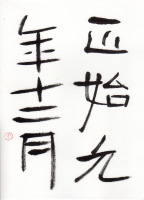 正始元
年十二月